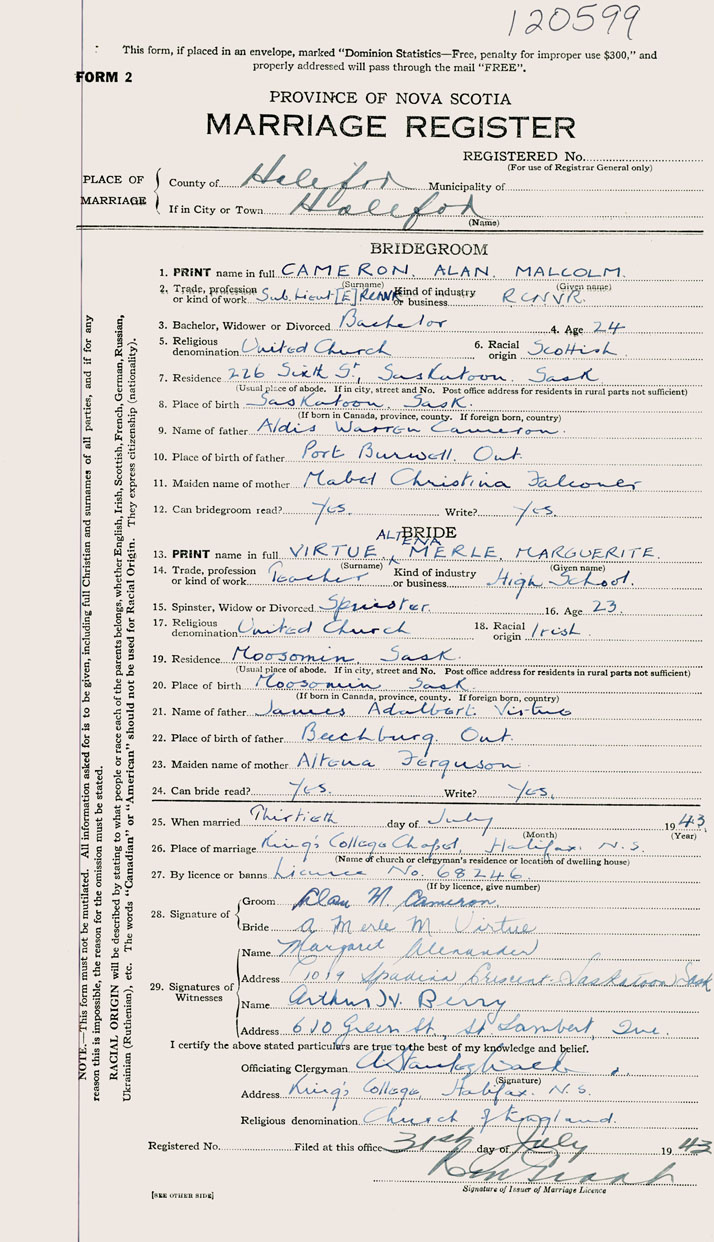 120599
This form, if placed in an envelope, marked "Dominion Statistics—Free, penalty for improper use $300," and
properly addressed will pass through the mail "FREE".
FORM 2
PROVINCE OF NOVA SCOTIA
MARRIAGE REGISTER
REGISTERED No.
(For use of Registrar General only)
PLACE OF MARRIAGE
County of Halifax Municipality of
If in City or Town Halifax
(Name)
BRIDEGROOM
1. PRINT name in full CAMERON, ALAN MALCOLM.
(Surname) (Given name)
2. Trade, profession or kind of work Sub. Lieut [E] RCNVR Kind of industry or business RCNVR.
3. Bachelor, Widower or Divorced Bachelor 4. Age 24
5. Religious denomination United Church 6. Racial origin Scottish.
7. Residence 226 Sixth St, Saskatoon. Sask.
(Usual place of abode. If in city, street and No. Post office address for residents in rural parts not sufficient)
8. Place of birth Saskatoon, Sask.
(If born in Canada, province, county. If foreign born, country)
9. Name of father Aldis Warren Cameron.
10. Place of birth of father Port Burwell. Ont.
11. Maiden name of mother Mabel Christina Falconer
12. Can bridegroom read? Yes. Write? Yes.
BRIDE
ALTENA
13. PRINT name in full VIRTUE, MERLE, MARGUERITE.
(Surname) (Given name)
14. Trade, profession or kind of work Teacher Kind of industry or business High School.
15. Spinster, Widow or Divorced Spinster. 16. Age 23.
17. Religious denomination United Church 18. Racial origin Irish.
19. Residence Moosomin, Sask.
(Usual place of abode. If in city, street and No. Post office address for residents in rural parts not sufficient)
20. Place of birth Moosomin Sask
(If born in Canada, province, county. If foreign born, country)
21. Name of father James Adalbert Virtue
22. Place of birth of father Beechburg. Ont.
23. Maiden name of mother Altena Ferguson.
24. Can bride read? Yes. Write? Yes.
25. When married Thirtieth day of July 1943
(Month) (Year)
26. Place of marriage King's College Chapel, Halifax. N.S.
(Name of church or clergyman's residence or location of dwelling house)
27. By licence or banns Licence No. 68246.
(If by licence, give number)
28. Signature of
Groom Alan M. Cameron.
Bride A Merle M. Virtue
29. Signatures of Witnesses
Name Margaret Alexander
Address 1019 Spadina Crescent Saskatoon Sask
Name Arthur W. Berry
Address 610 Green St, St Lambert, Que.
I certify the above stated particulars are true to the best of my knowledge and belief.
Officiating Clergyman A Stanley Walker
(Signature)
Address King's College, Halifax. N.S.
Religious denomination Church of England.
Registered No. Filed at this office 31st day of July 1943
Signature of Issuer of Marriage Licence
[SEE OTHER SIDE]
NOTE.—This form must not be mutilated. All information asked for is to be given, including full Christian and surnames of all parties, and if for any
reason this is impossible, the reason for the omission must be stated.
RACIAL ORIGIN will be described by stating to what people or race each of the parents belongs, whether English, Irish, Scottish, French, German, Russian,
Ukrainian (Ruthenian), etc. The words "Canadian" or "American" should not be used for Racial Origin. They express citizenship (nationality).